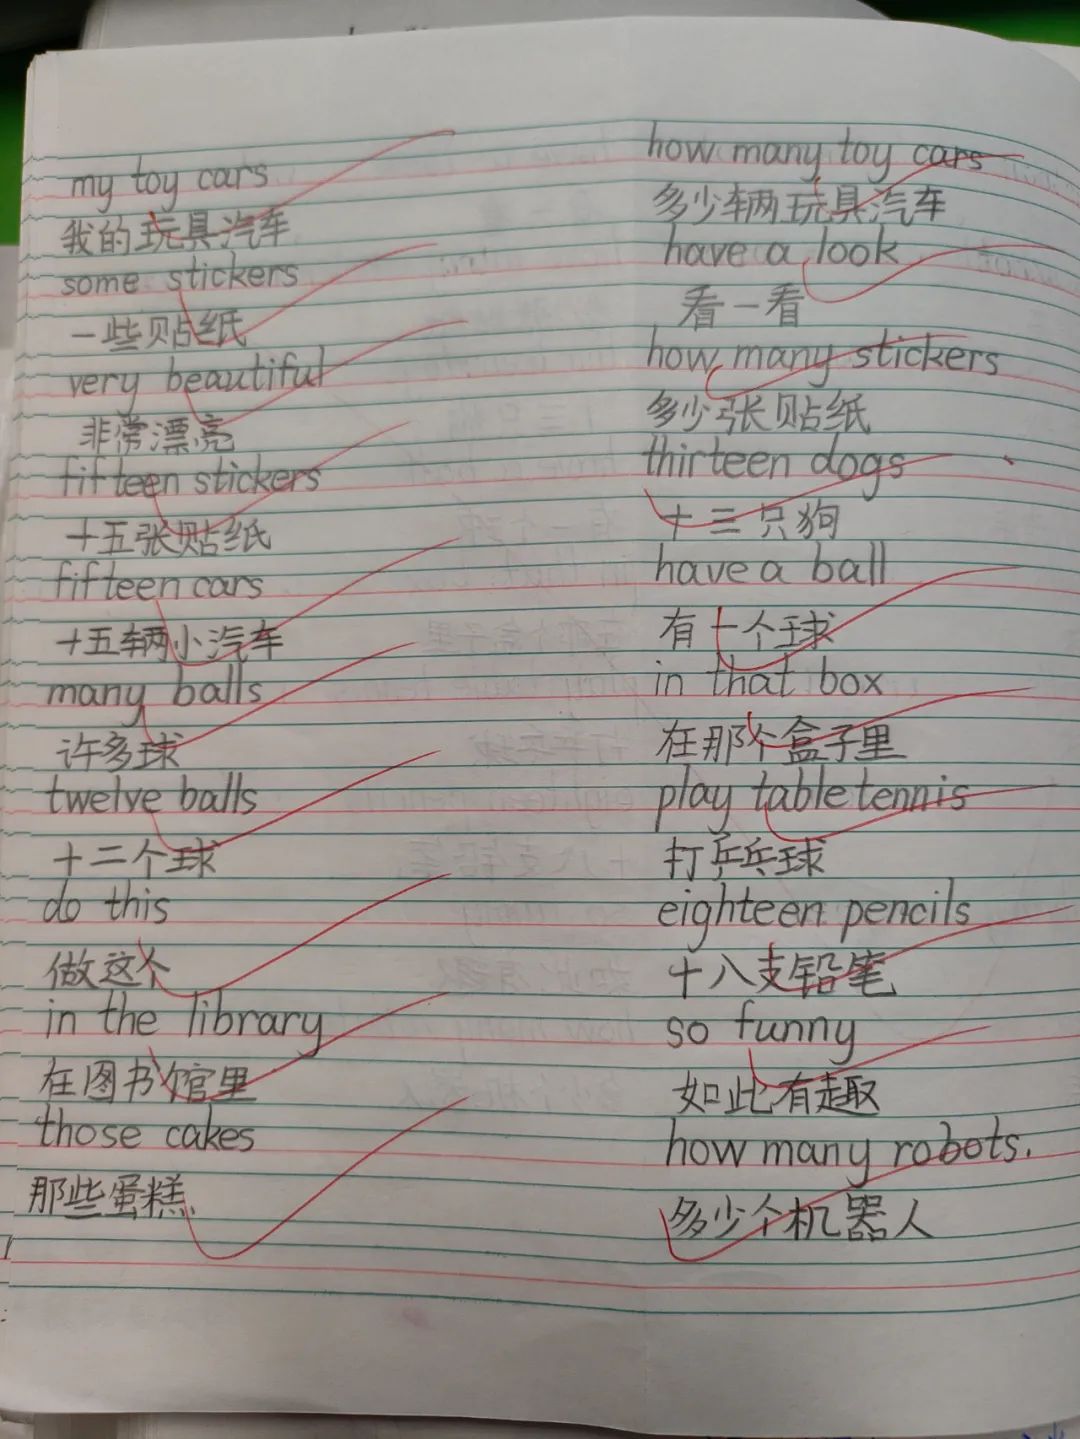 my toy cars
我的玩具汽车
some stickers
一些贴纸
very beautiful
非常漂亮
fifteen stickers
十五张贴纸
fifteen cars
十五辆小汽车
many balls
许多球
twelve balls
十二个球
do this
做这个
in the library
在图书馆里
those cakes
那些蛋糕
how many toy cars
多少辆玩具汽车
have a look
看一看
how many stickers
多少张贴纸
thirteen dogs
十三只狗
have a ball
有一个球
in that box
在那个盒子里
play table tennis
打乒乓球
eighteen pencils
十八支铅笔
so funny
如此有趣
how many robots.
多少个机器人